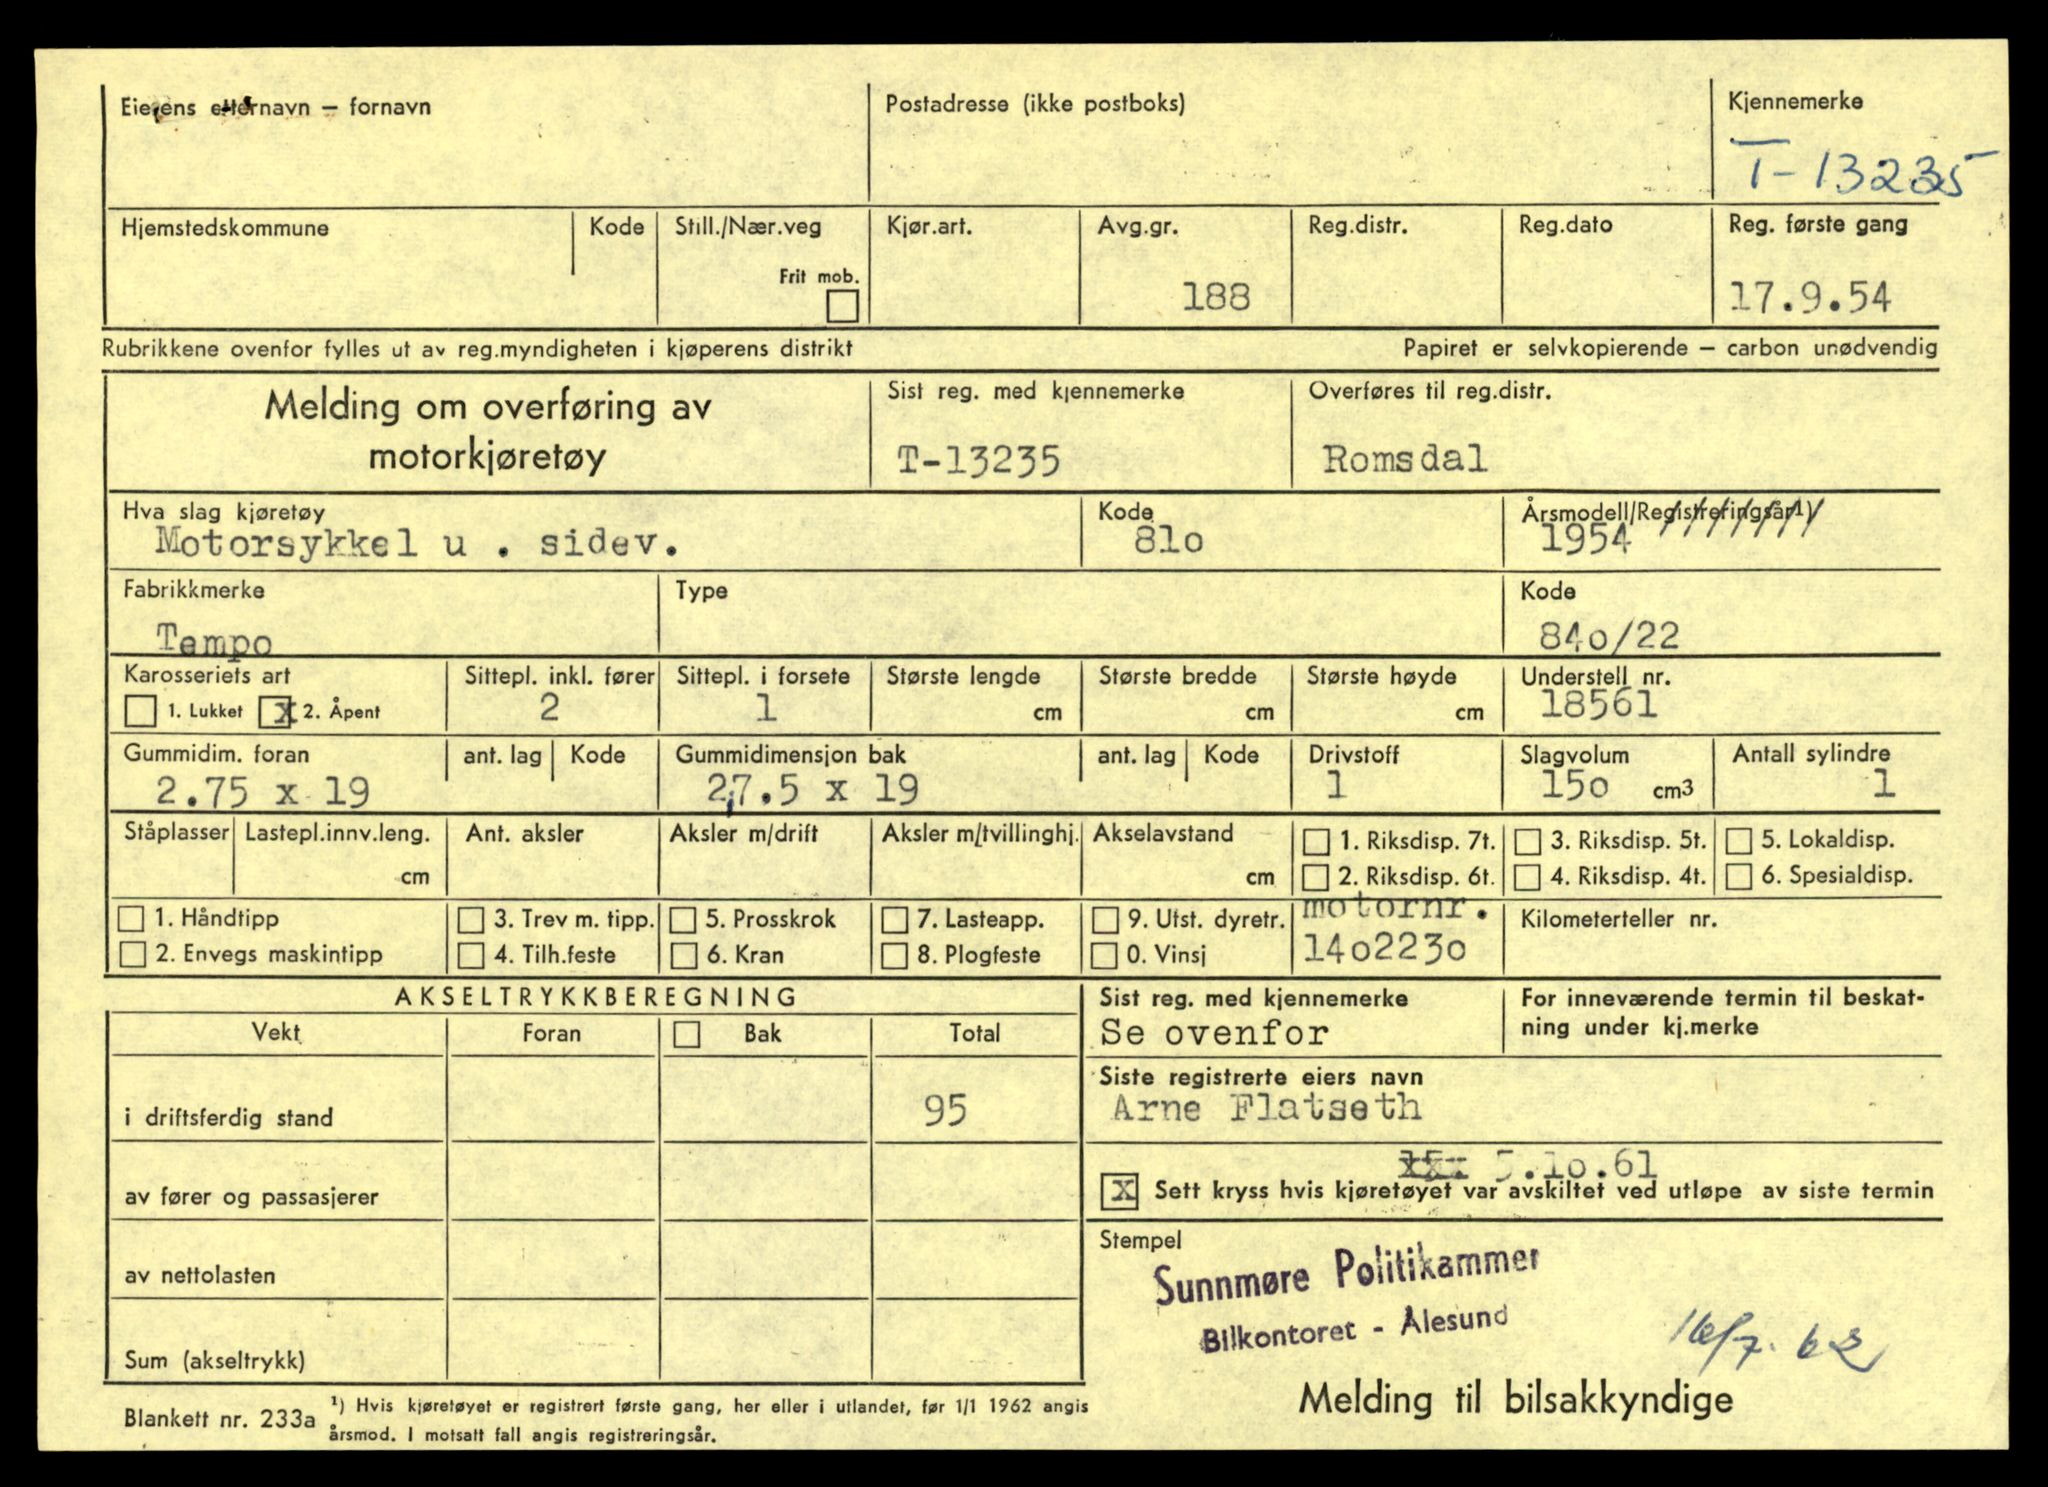 Eierens etternavn – fornavn
Postadresse (ikke postboks)
Kjennemerke
T-13235
Hjemstedskommune
Kode
Still./Nær.veg
Frit mob.
Kjør.art.
Avg.gr.
188
Reg.distr.
Reg.dato
Reg. første gang
17.9.54
Rubrikkene ovenfor fylles ut av reg.myndigheten i kjøperens distrikt
Papiret er selvkopierende – carbon unødvendig
Melding om overføring av
motorkjøretøy
Sist reg. med kjennemerke
T-13235
Overføres til reg.distr.
Romsdal
Hva slag kjøretøy
Motorsykkel u . sidev.
Kode
81o
Årsmodell/Registreringsår1)
1954
Fabrikkmerke
Tempo
Type
Kode
84o/22
Karosseriets art
1. Lukket X 2. Åpent
Sittepl. inkl. fører
2
Sittepl. i forsete
1
Største lengde
cm
Største bredde
cm
Største høyde
cm
Understell nr.
18561
Gummidim. foran
2.75 x 19
ant. lag
Kode
Gummidimensjon bak
2,7.5 x 19
ant. lag
Kode
Drivstoff
1
Slagvolum
15o cm3
Antall sylindre
1
Ståplasser
Lastepl.innv.leng.
cm
Ant. aksler
Aksler m/drift
Aksler m/tvillinghj.
Akselavstand
cm
1. Riksdisp. 7t.
2. Riksdisp. 6t.
3. Riksdisp. 5t.
4. Riksdisp. 4t.
5. Lokaldisp.
6. Spesialdisp.
1. Håndtipp
2. Envegs maskintipp
3. Trev m. tipp.
4. Tilh.feste
5. Prosskrok
6. Kran
7. Lasteapp.
8. Plogfeste
9. Utst. dyretr.
0. Vinsj
motornr.
14o223o
Kilometerteller nr.
AKSELTRYKKBEREGNING
Vekt
Foran
Bak
Total
i driftsferdig stand
95
av fører og passasjerer
av nettolasten
Sum (akseltrykk)
Sist reg. med kjennemerke
Se ovenfor
For inneværende termin til beskat-
ning under kj.merke
Siste registrerte eiers navn
Arne Flatseth
5.1o.61
X Sett kryss hvis kjøretøyet var avskiltet ved utløpe av siste termin
Stempel
Sunnmøre Politikammer
Bilkontoret - Ålesund
16/7. 62
Melding til bilsakkyndige
Blankett nr. 233a
1) Hvis kjøretøyet er registrert første gang, her eller i utlandet, før 1/1 1962 angis
årsmod. I motsatt fall angis registreringsår.